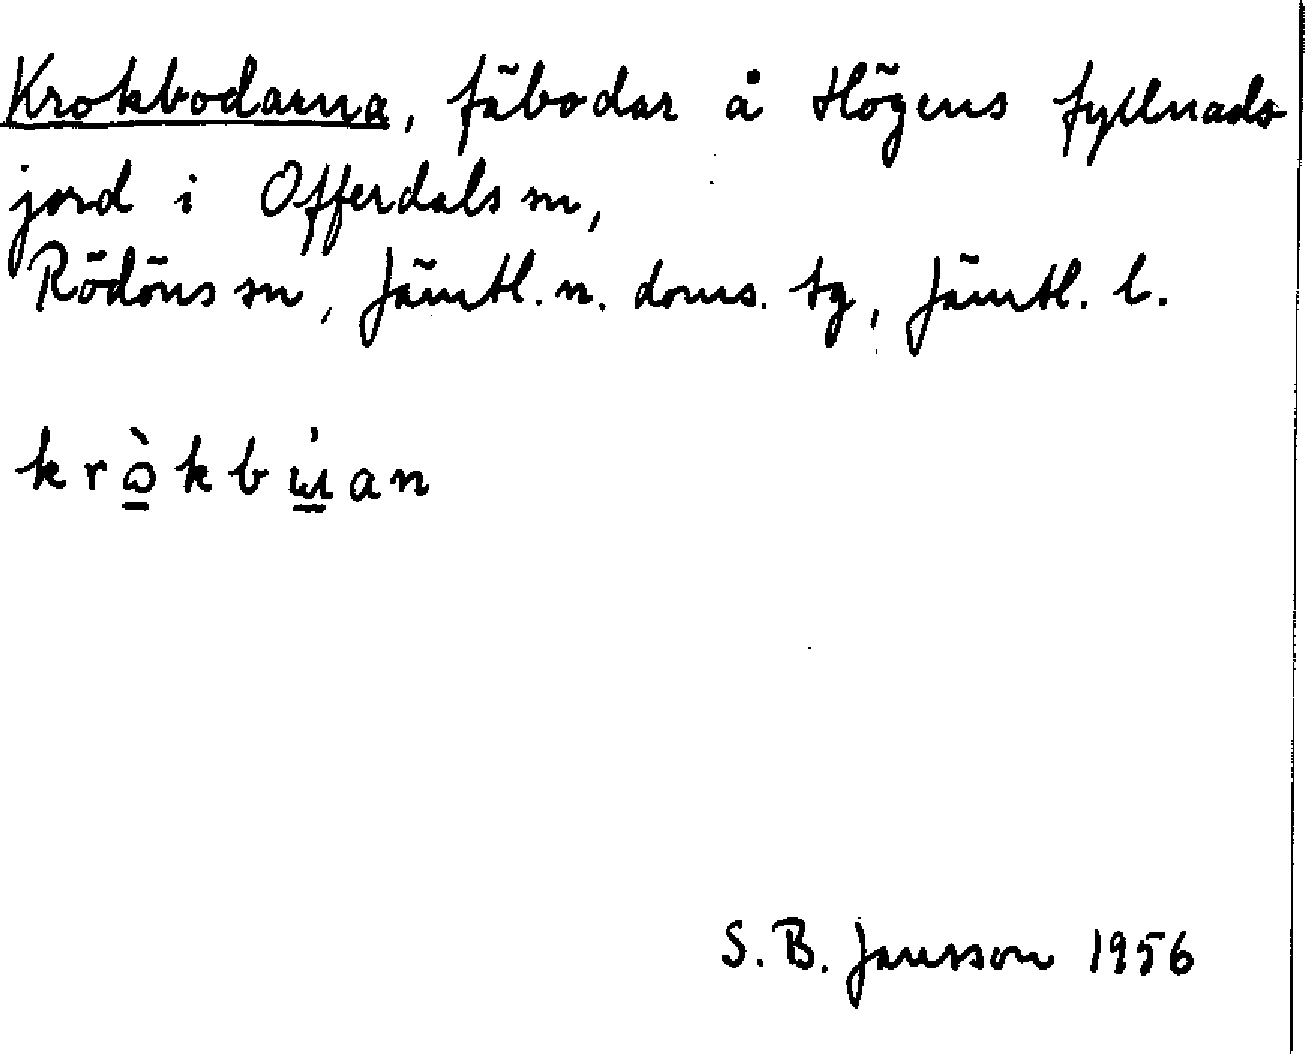 Krokbodarna, fäbodar å Högens fyllnads
jord i Offerdals sn,
Rödöns sn, Jämtl. n. doms. tg, Jämtl. l.
S. B. Jansson 1956